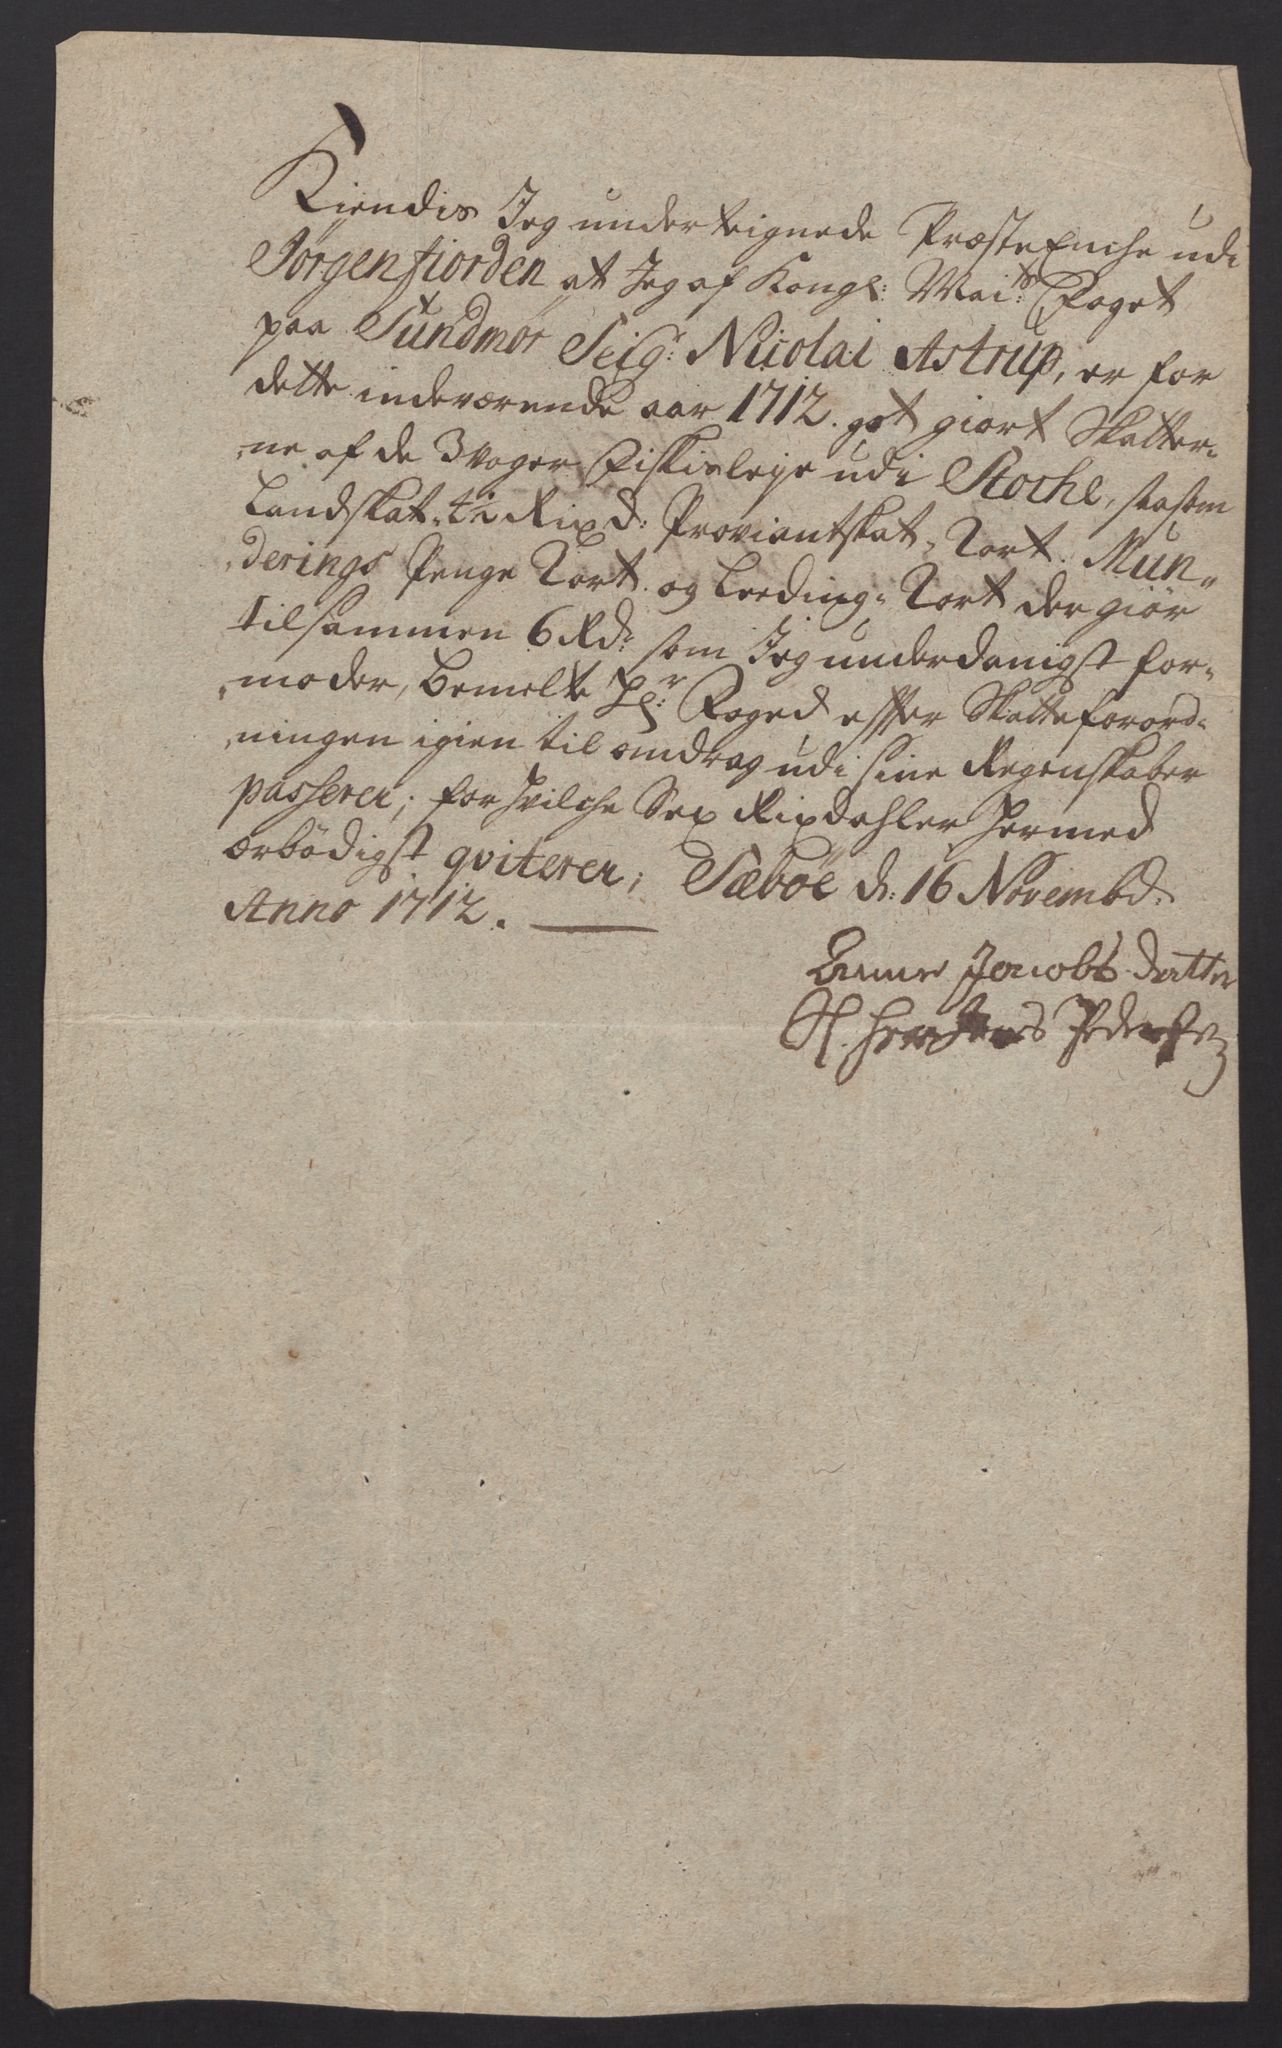 Kiendis Jeg underteignede PræsteEnche udi
Jörgenfiorden at Jeg af Kongl: Mai:ts Foget
paa Sundmör Seig:r Nicolai Astrup, er for
dette indeværende aar 1712. got giort Skatter-
ne af de 3 woger Fiskisleye udi Stoche, saasom
Landskat, Rixd: Proviantskat, Xort. Mun-
derings Penge Xort. og Leeding, Xort der giör
tilsammen 6 Rd: som Jeg underdanigst for-
moder, bemelte Hr: Foged effter Skatteforord-
ningen igien til omdrag udi sine Regenskaber
passerer; for hvilche Sex Rixdahler hermed
ærbödigst qviterer; Sæböe d: 16 Novembd:
Anno 1712.
Anne Jacobs datter
Sl. her Jens Pedersens